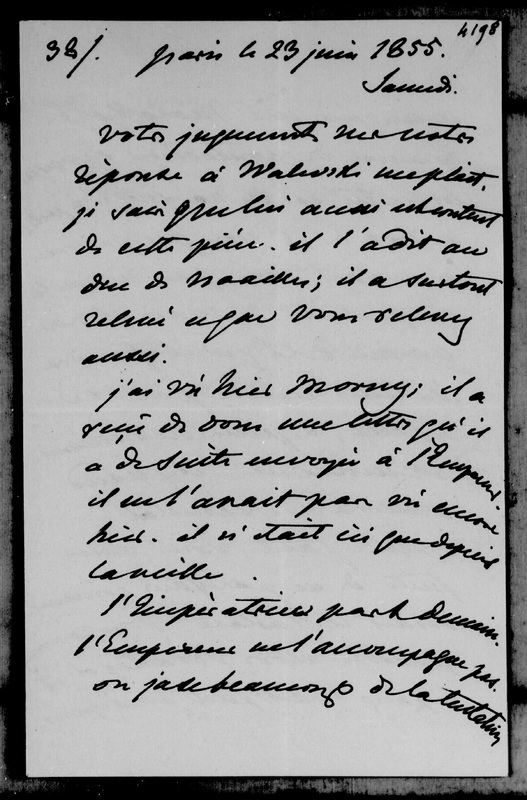 4198
38/. Paris le 23 juin 1855.
Samedi.
votre jugement sur notre
réponse à Walewski me plait.
je sais que lui aussi est content
de cette pièce. il l'a dit au
duc de Noailles; il a surtout
relevé ce que vous relevez
aussi.
j'ai vu hier Morny; il a
reçu de vous une lettre qu'il
a de suite envoyée à l'Empereur.
il ne l'avait pas vu encore
hier. il n'était ici que depuis
la veille.
l'Impératrice part demain.
l'Empereur ne l'accompagne pas.
on jase beaucoup de la